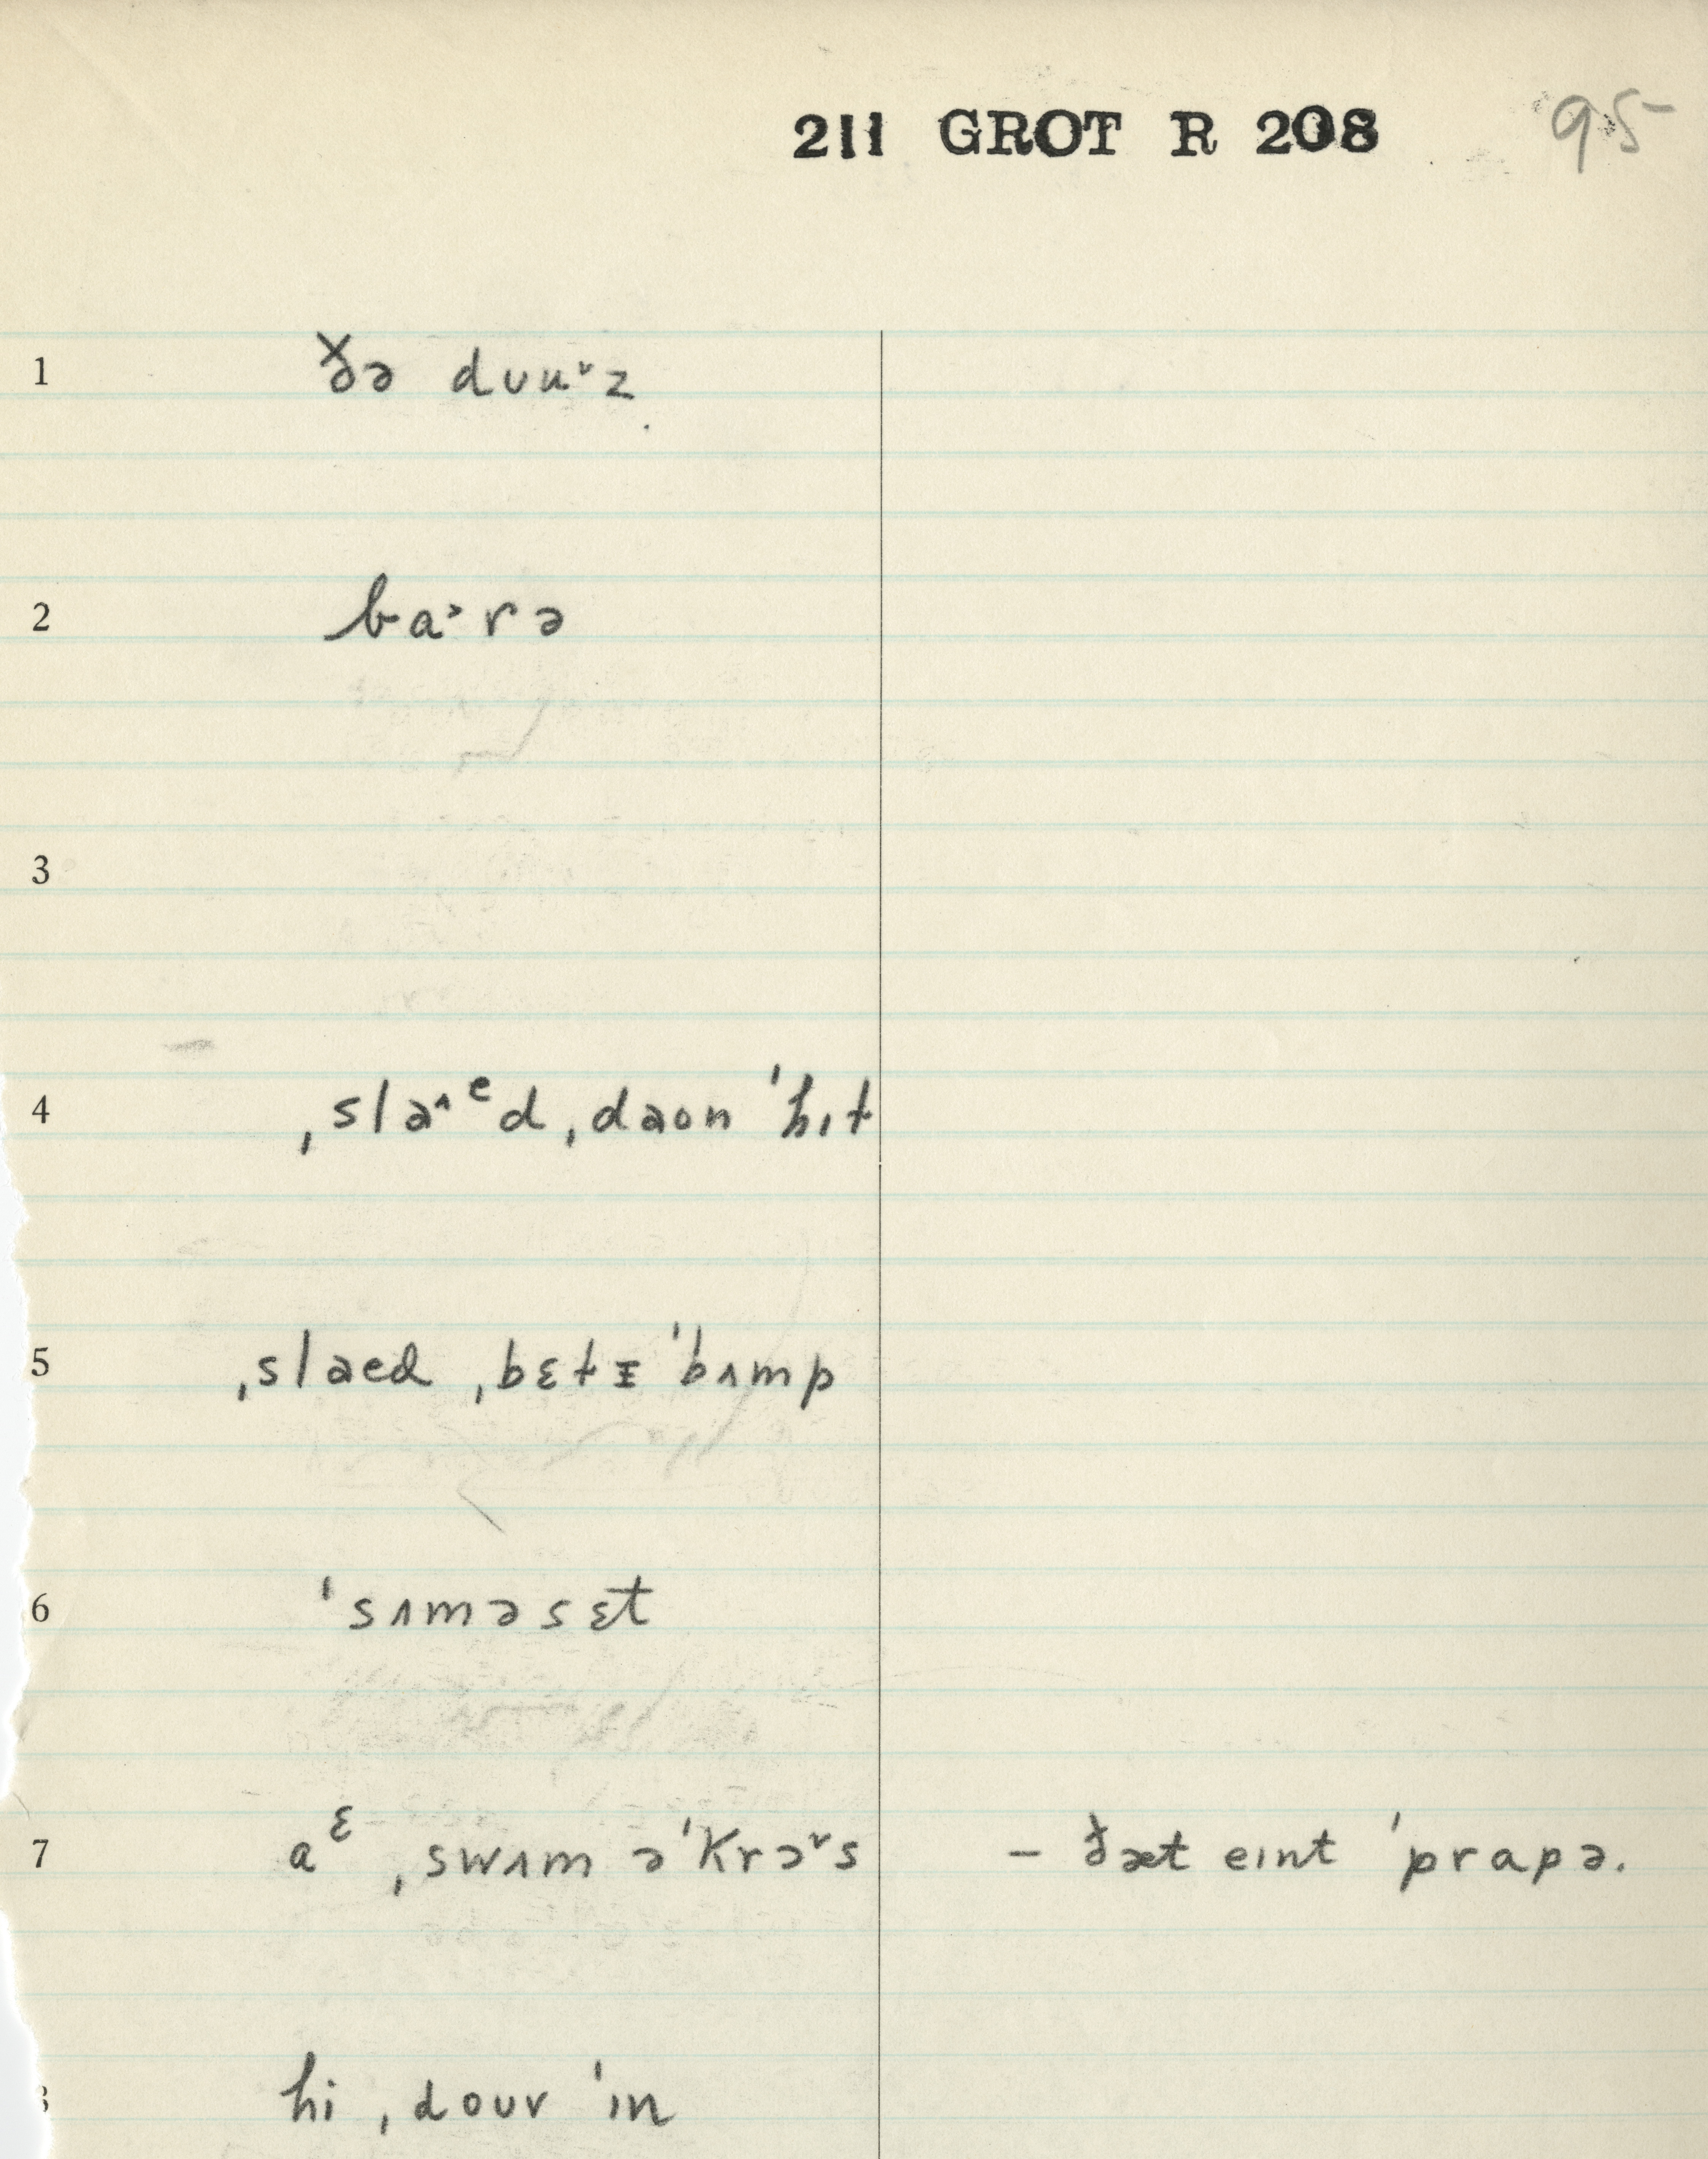 211 GROT R 208 95
1 ðə dʊuᵛz
2 ba˃rə
3
4 ˌslaˆᵉd ˌdaon ˈhɪt
5 ˌslaed ˌbɛtɪ ˈbʌmp
6 ˈsʌməsɛt
7 aᵋ ˌswʌm əˈkrɔᵛs – ðæt eɪnt ˈprapə.
hi ˌdouv ˈɪn